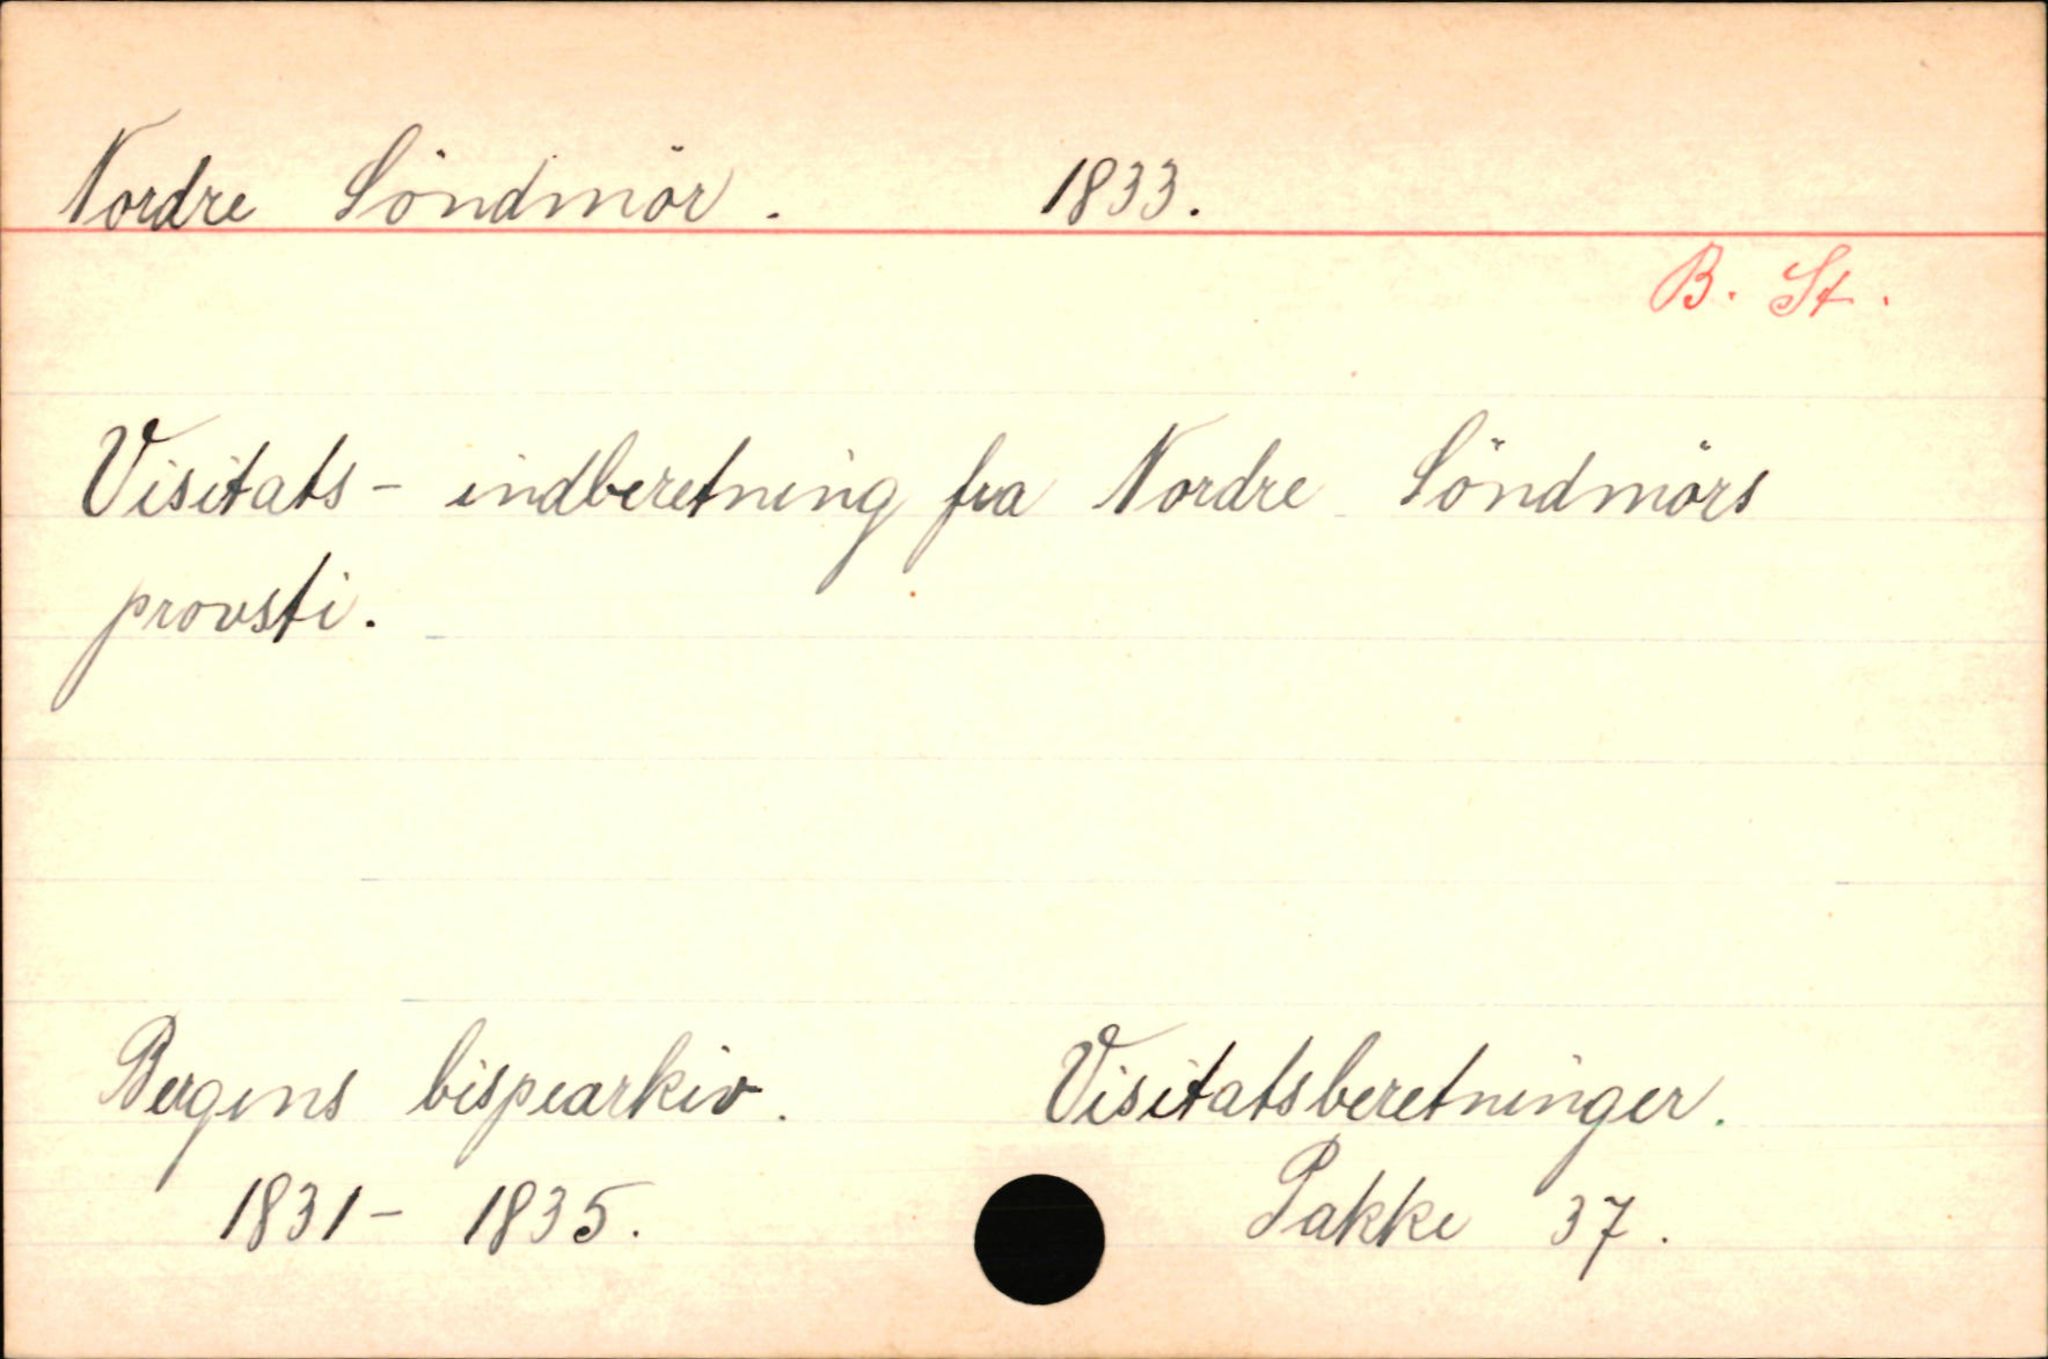 Nordre Söndmör. 1833.
B. St.
Visitats- indberetning fra Nordre Söndmörs
provsti.
Bergens bispearkiv. Visitatsberetninger.
1831- 1835. Pakke 37.